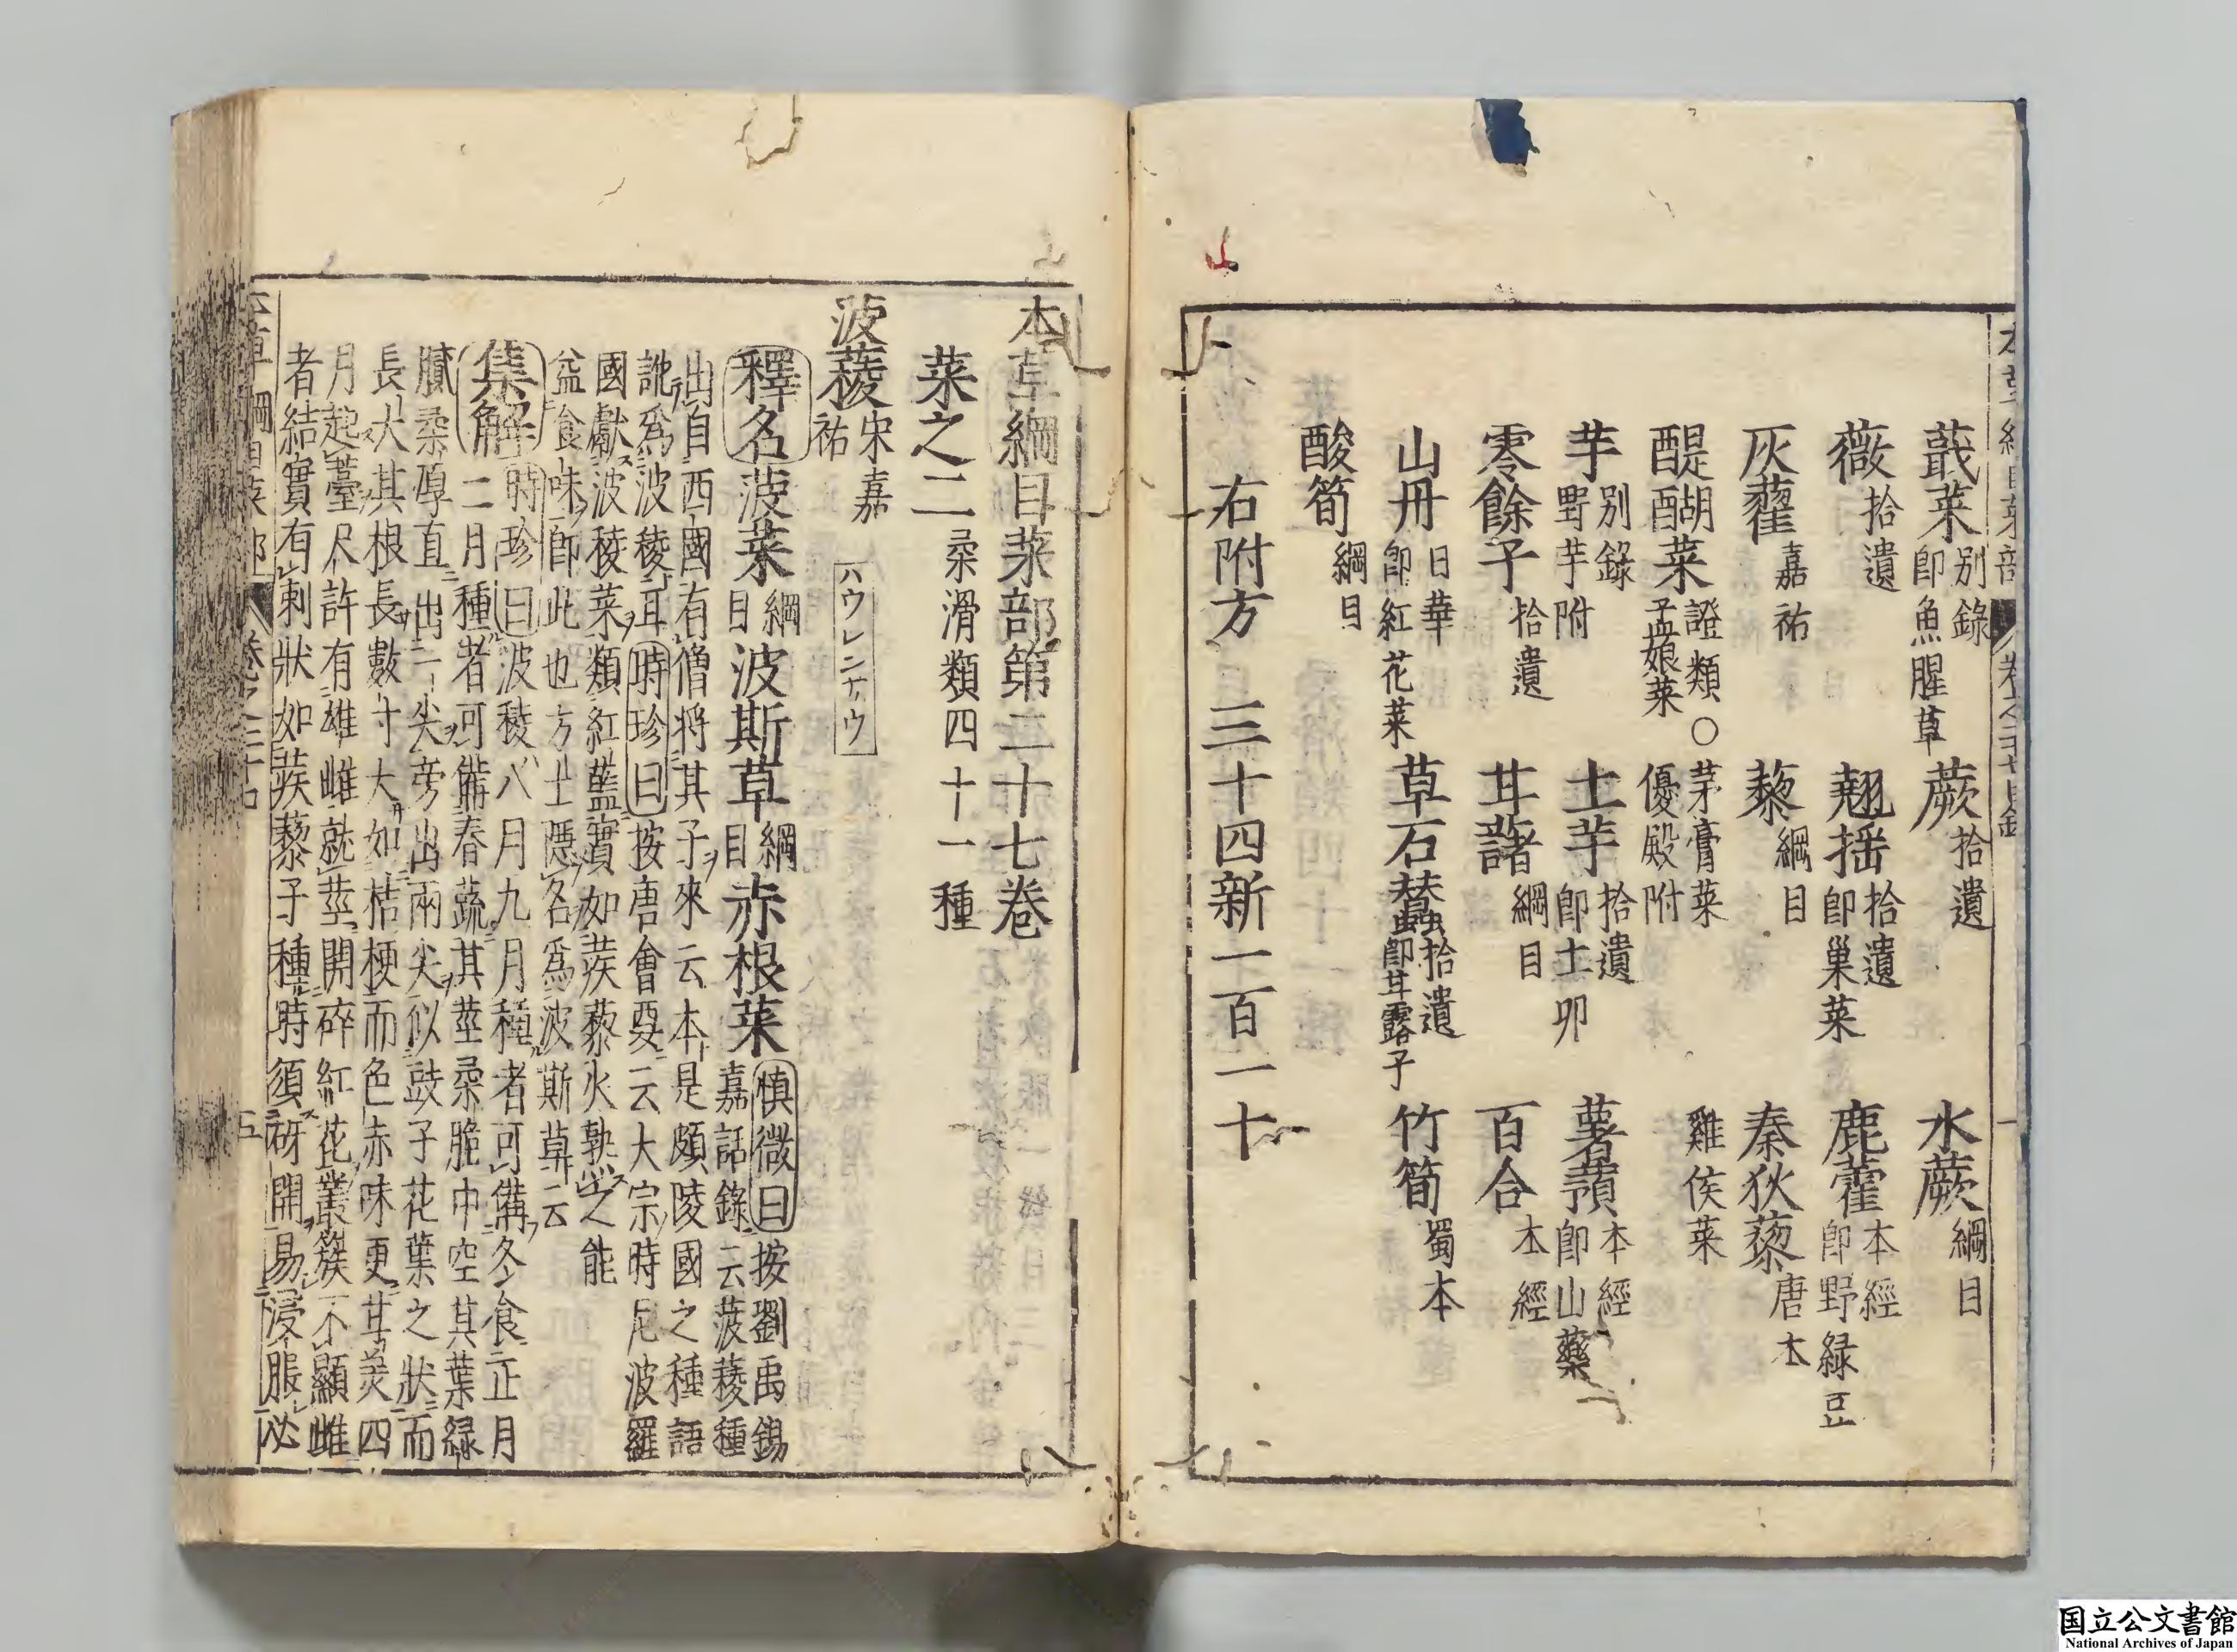 蕺菜 別錄 即魚腥草 蕨 拾遺 水蕨 綱目
薇 拾遺 翹搖 拾遺 即巢菜 鹿藿 本經 即野綠豆
灰藋 嘉祐 藜 綱目 秦狄藜 唐本
醍醐菜 證類 ○ 茅膏菜 雞侯菜 孟娘菜 優殿附
芋 別錄 野芋附 土芋 拾遺 即土卵 薯蕷 本經 即山藥
零餘子 拾遺 甘藷 綱目 百合 本經
山丹 日華 即紅花菜 草石蠶 拾遺 即甘露子 竹筍 蜀本
酸筍 綱目
右附方 三十四新一百一十
本草綱目菜部第二十七卷
菜之二 柔滑類四十一種
菠薐 宋嘉祐 ハウレンナウ
釋名 菠菜 綱目 波斯草 綱目 赤根菜 慎微曰按劉禹錫
嘉話錄云菠薐種
出自西國有僧將其子來云本是頗陵國之種語
訛爲波稜耳時珍曰按唐會要云大宗時尼波羅
國獻波稜菜類紅藍實如蒺藜火熟之能
益食味即此也方士隱名爲波斯草云
集解 時珍曰波稜八月九月種者可備冬食正月
二月種者可備春蔬其莖柔脆中空其葉綠
膩柔厚直出一尖旁出兩尖似鼓子花葉之狀而
長大其根長數寸大如桔梗而色赤味更甘美四
月起薹尺許有雄雌就莖開碎紅花叢簇不顯雌
者結實有刺狀如蒺藜子種時須砑開易浸脹必
国立公文書館
National Archives of Japan